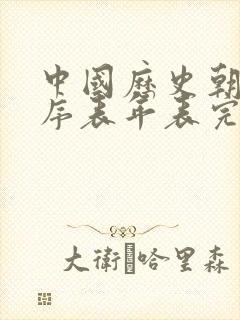 中國歷史朝
序表年表完
大衛 哈里森